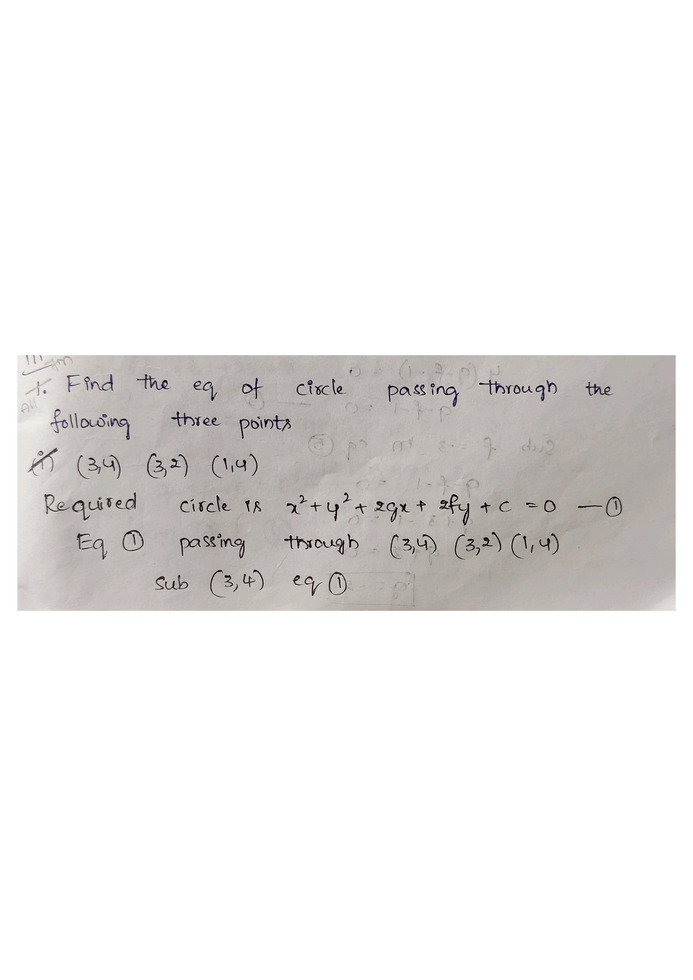 1. Find the eq of circle passing through the
following three points
(i) (3,4) (3,2) (1,4)
Required circle is x² + y² + 2gx + 2fy + c = 0 — ①
Eq ① passing through (3,4) (3,2) (1,4)
Sub (3,4) eq ①